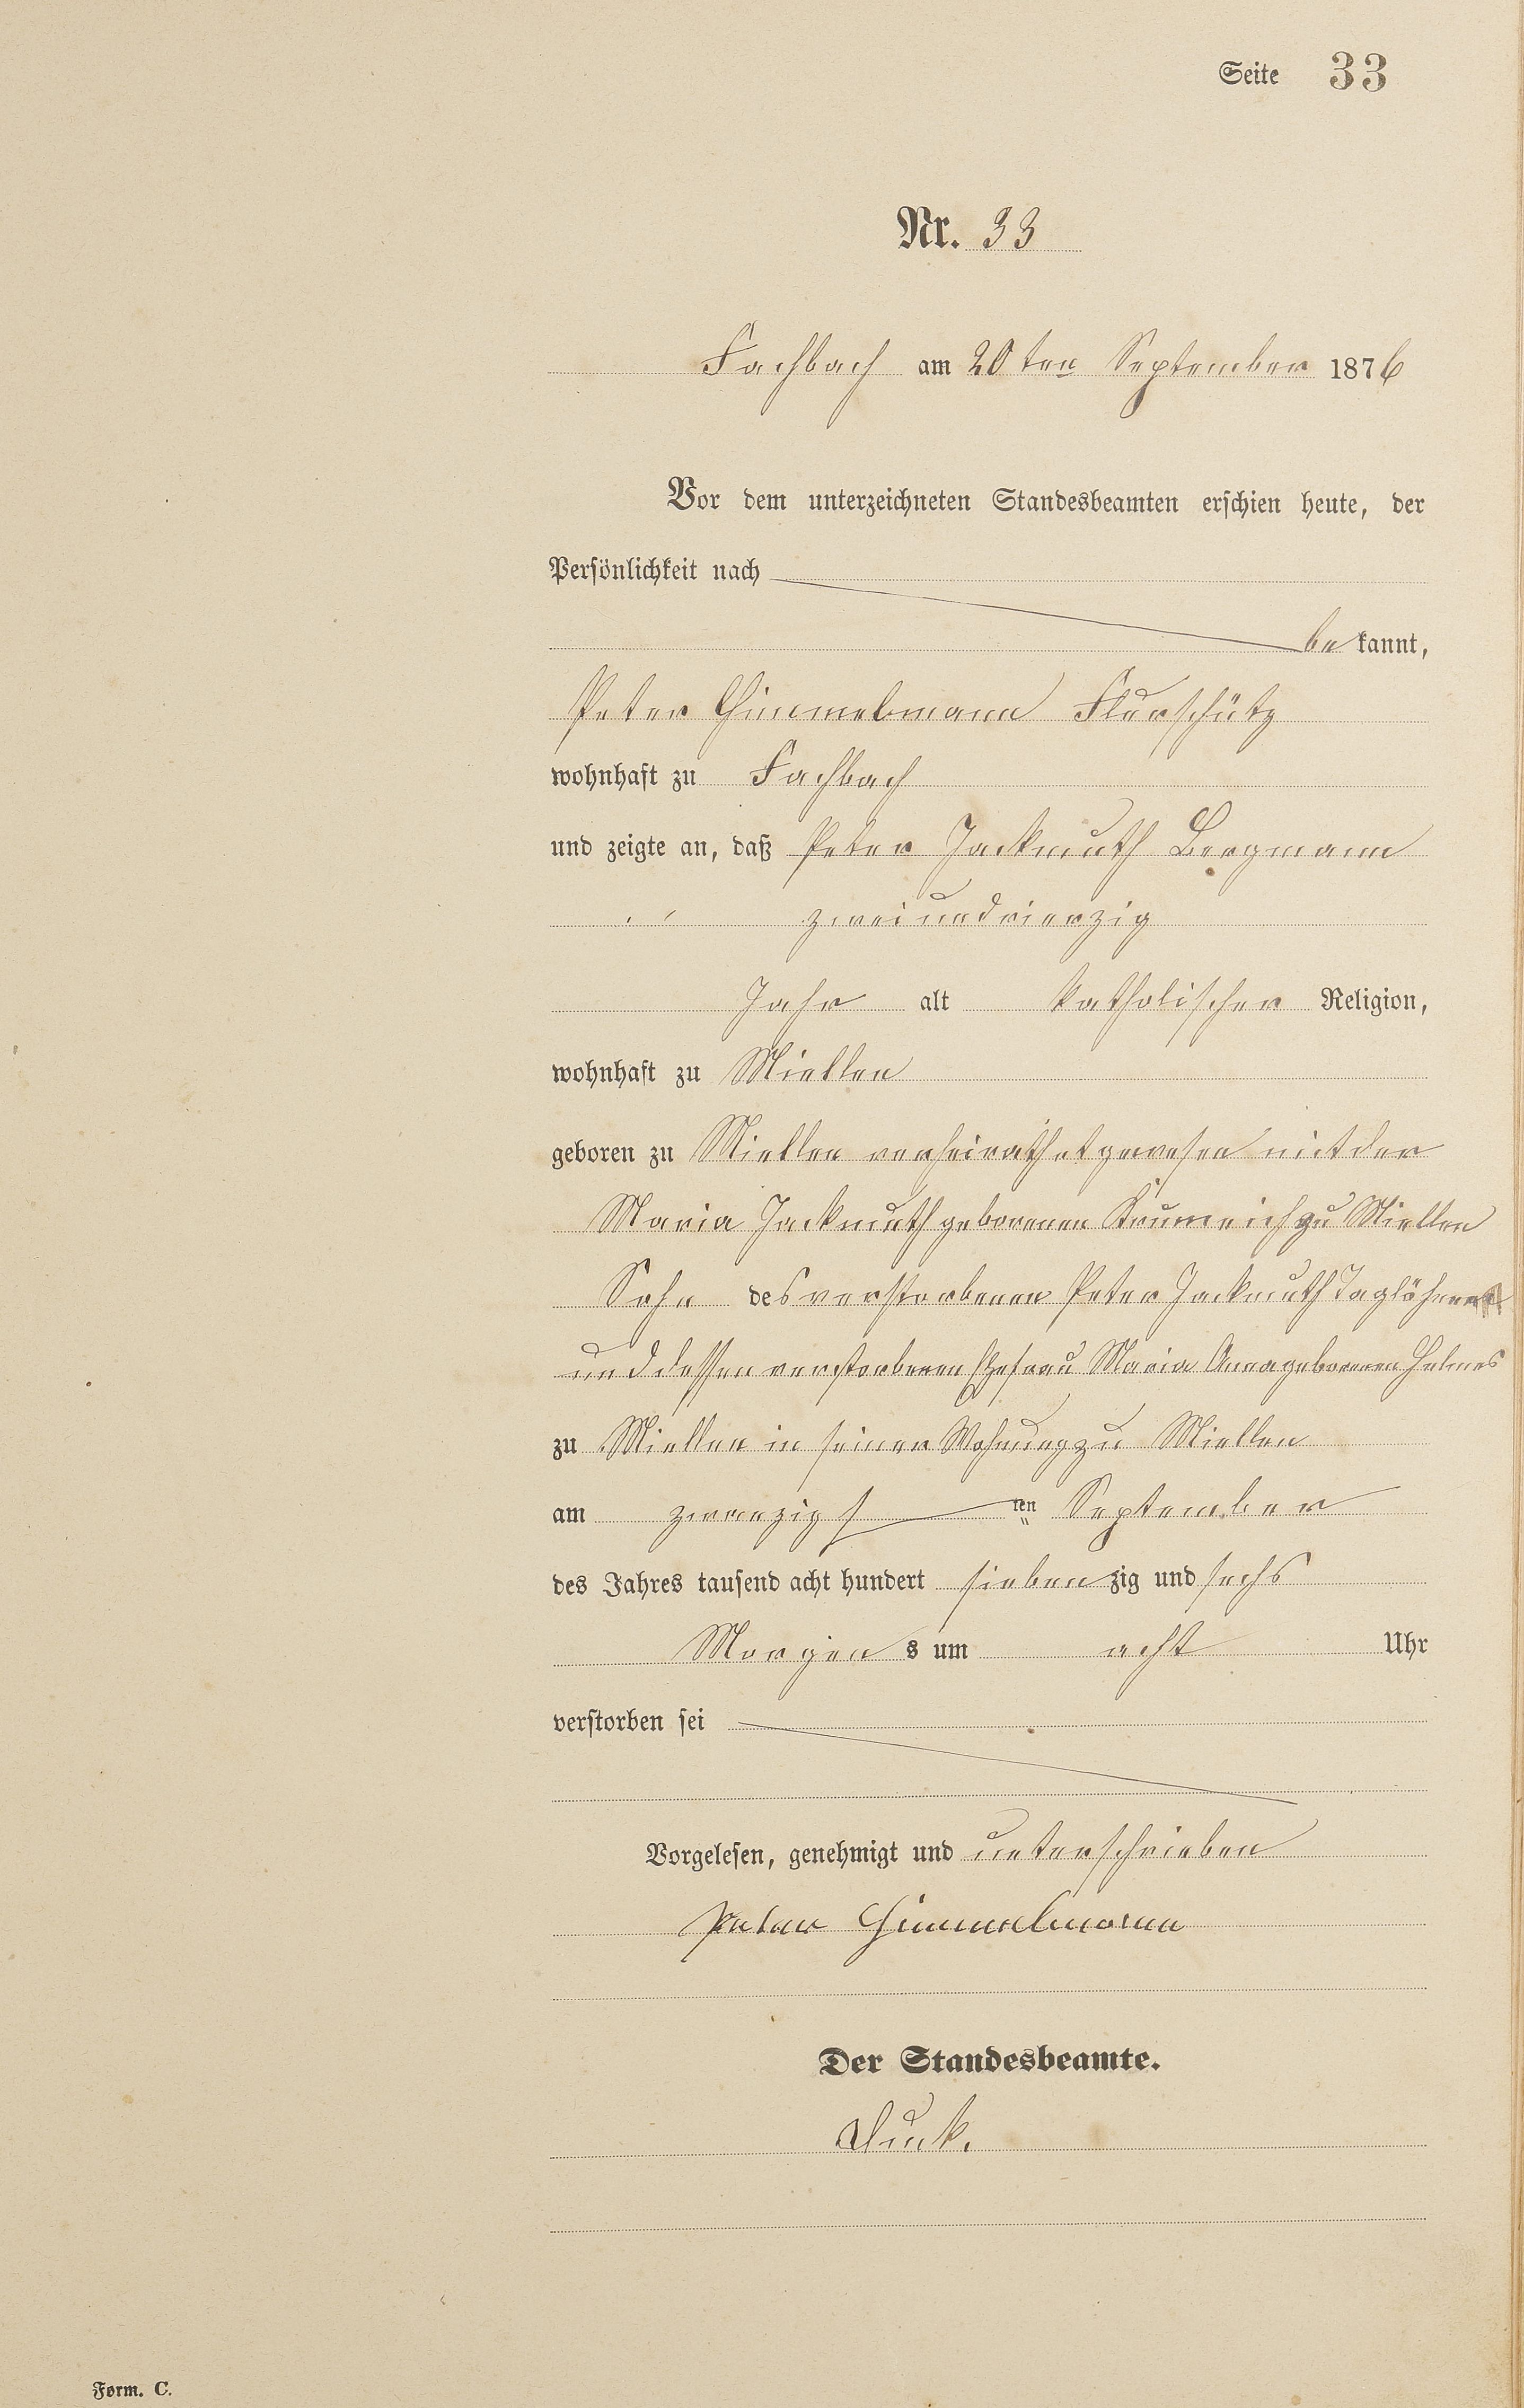 Seite 33
Nr. 33
Fachbach am 20ten September 1876
Vor dem unterzeichneten Standesbeamten erschien heute, der
Persönlichkeit nach
bekannt,
Peter Himmelmann Flurschütz
wohnhaft zu Fachbach
und zeigte an, daß Peter Jackmuth Bergmann
zweiundvierzig
Jahr alt katholischer Religion,
wohnhaft zu Miellen
geboren zu Miellen verheirathet gewesen mit der
Maria Jackmuth geborenen Krumeich zu Miellen
Sohn des verstorbenen Peter Jackmuth Taglöhner
und dessen verstorbenen Ehefrau Maria Anna geborenen Helmes
zu Miellen in seiner Wohnung zu Miellen
am zwanzigsten September
des Jahres tausend acht hundert siebenzig und sechs
Morgens um acht Uhr
verstorben sei
Vorgelesen, genehmigt und unterschrieben
Peter Himmelmann
Der Standesbeamte.
Form. C.